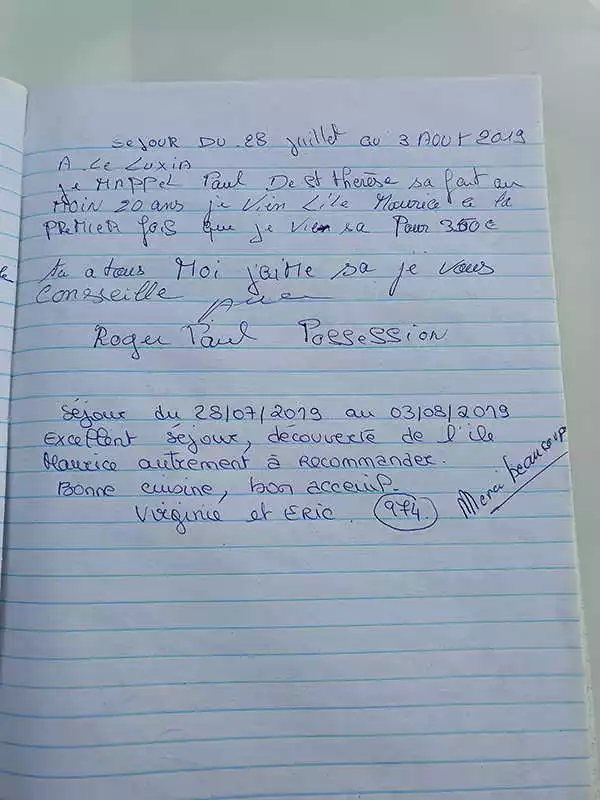 SEJOUR DU 28 juillet au 3 AOUT 2019
A Le LuxiA
je MAPPeL Paul De St Therèse sa fait au
MOIN 20 ans je Vien L'ile Maurice e la
PREMIER fois que je Vien sa Pour 350€
tu a tous Moi j'aime sa je vous
Consseille
Roger Paul Possession
Séjour du 28/07/2019 au 03/08/2019
Excellent séjour, découverte de l'ile
Maurice autrement à Recommander.
Bonne cuisine, bon acceuil.
Virginie et ERIC. 974.
Merci beaucoup